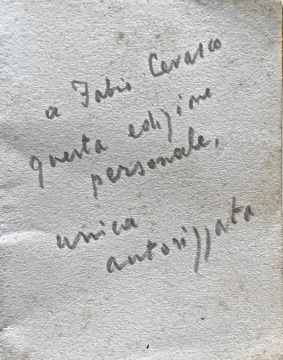 a Fabio Cerasco
questa edizione
personale,
unica
autorizzata